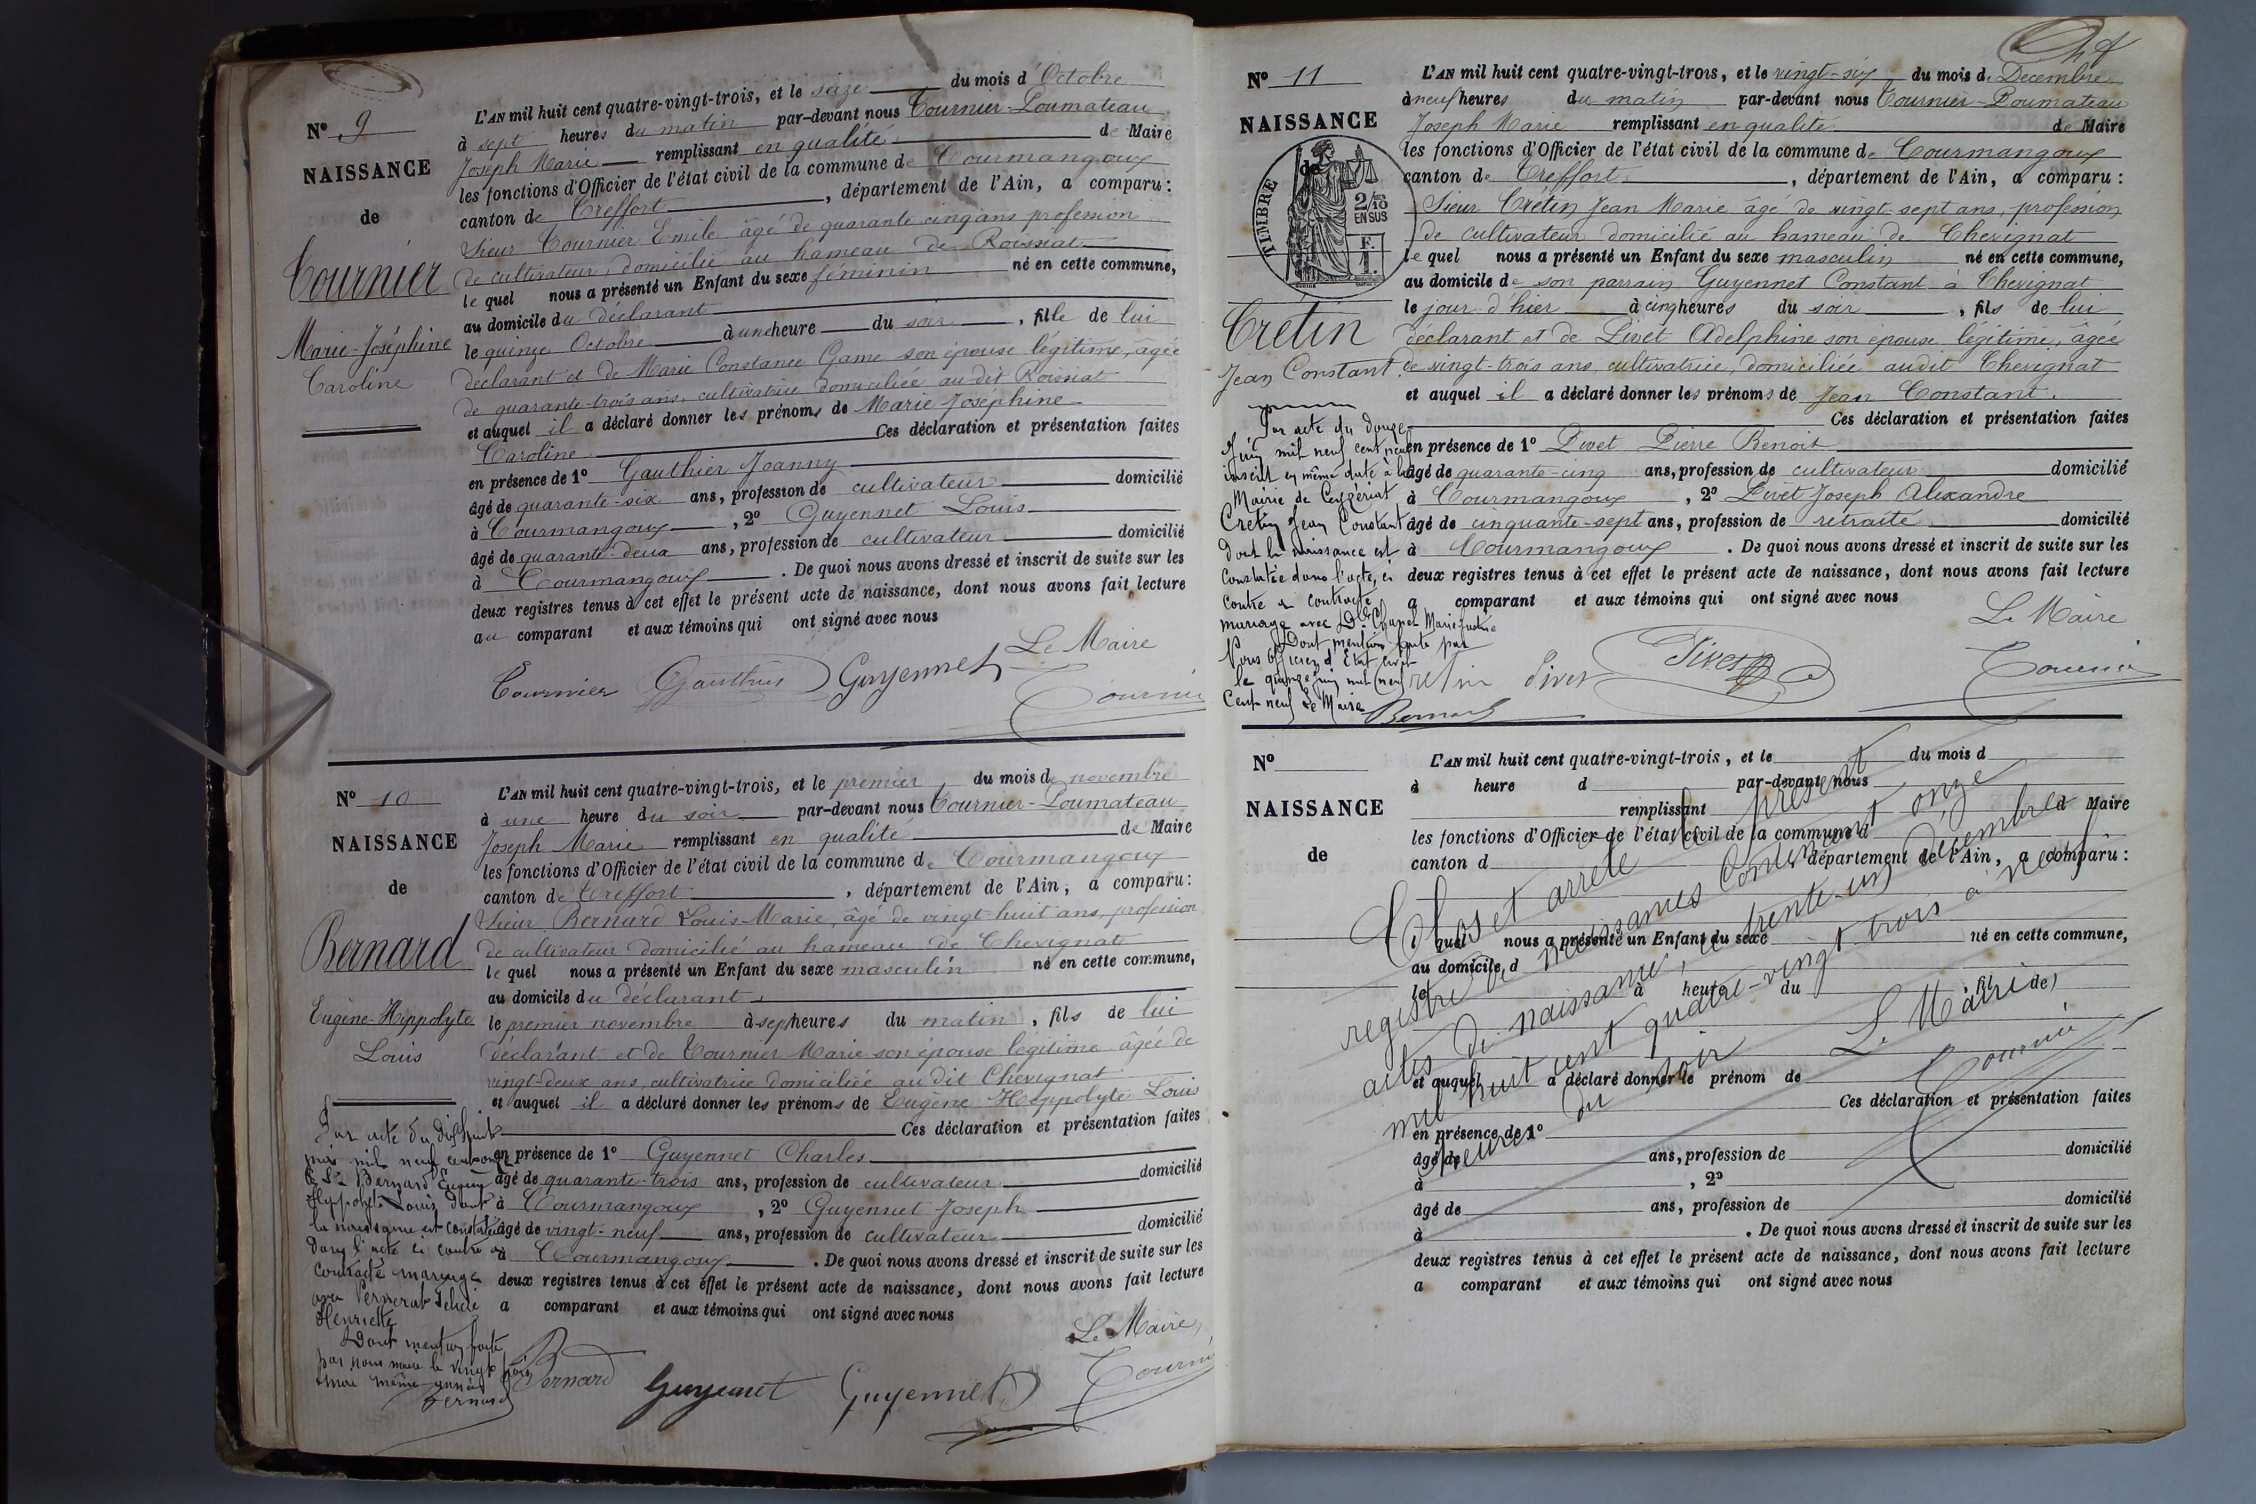 L'AN mil huit cent quatre-vingt-trois, et le seize du mois d'Octobre
Nº 9
à sept heures du matin par-devant nous Tournier-Poumateau
Joseph Marie remplissant en qualité de Maire
NAISSANCE
les fonctions d'Officier de l'état civil de la commune de Courmangoux
de
canton de Treffort, département de l'Ain, a comparu :
Sieur Tournier Emile âgé de quarante cinq ans profession
Tournier
de cultivateur, domicilié au hameau de Roissiat
le quel nous a présenté un Enfant du sexe féminin né en cette commune,
au domicile du déclarant
Marie-Joséphine
le quinze Octobre à une heure du soir, fille de lui
Caroline
déclarant et de Marie Constance Game son épouse légitime, âgée
de quarante-trois ans, cultivatrice domiciliée au dit Roissiat
et auquel il a déclaré donner les prénoms de Marie Joséphine
Caroline Ces déclaration et présentation faites
en présence de 1º Gauthier Joanny
âgé de quarante-six ans, profession de cultivateur domicilié
à Courmangoux, 2º Guyennet Louis
âgé de quarante-deux ans, profession de cultivateur domicilié
à Courmangoux. De quoi nous avons dressé et inscrit de suite sur les
deux registres tenus à cet effet le présent acte de naissance, dont nous avons fait lecture
au comparant et aux témoins qui ont signé avec nous
Le Maire
Tournier Gauthier Guyennet Tournier
L'AN mil huit cent quatre-vingt-trois, et le premier du mois de novembre
Nº 10
à une heure du soir par-devant nous Tournier-Poumateau
NAISSANCE
Joseph Marie remplissant en qualité de Maire
les fonctions d'Officier de l'état civil de la commune de Courmangoux
de
canton de Treffort, département de l'Ain, a comparu :
Sieur Bernard Louis-Marie, âgé de vingt-huit ans, profession
Bernard
de cultivateur domicilié au hameau de Chevignat
le quel nous a présenté un Enfant du sexe masculin né en cette commune,
au domicile du déclarant
Eugène-Hippolyte
le premier novembre à sept heures du matin, fils de lui
Louis
déclarant et de Tournier Marie son épouse légitime âgée de
vingt-deux ans, cultivatrice domiciliée au dit Chevignat
et auquel il a déclaré donner les prénoms de Eugène Hippolyte Louis
Ces déclaration et présentation faites
en présence de 1º Guyennet Charles
âgé de quarante-trois ans, profession de cultivateur domicilié
à Courmangoux, 2º Guyennet Joseph
âgé de vingt-neuf ans, profession de cultivateur domicilié
à Courmangoux. De quoi nous avons dressé et inscrit de suite sur les
deux registres tenus à cet effet le présent acte de naissance, dont nous avons fait lecture
a comparant et aux témoins qui ont signé avec nous
Par acte du dix huit
mai mil neuf cent onze
le Sr Bernard Eugène
Hyppolyte Louis dont
la naissance est constatée
dans l'acte ci contre a
contracté mariage
avec Pernerat
Henriette
Dont mention faite
par nous maire le vingt trois
mai même année
Bernard
Le Maire,
Bernard Guyennet Guyennet Tournier
Nº 11
L'AN mil huit cent quatre-vingt-trois, et le vingt-six du mois de Decembre
à neuf heures du matin par-devant nous Tournier-Poumateau
NAISSANCE
Joseph Marie remplissant en qualité de Maire
les fonctions d'Officier de l'état civil de la commune de Courmangoux
de
canton de Treffort, département de l'Ain, a comparu :
TIMBRE
2/10
EN SUS
F.
1.
Sieur Crétin Jean Marie âgé de vingt-sept ans, profession
de cultivateur domicilié au hameau de Chevignat
le quel nous a présenté un Enfant du sexe masculin né en cette commune,
au domicile de son parrain Guyennet Constant à Chevignat
le jour d'hier à cinq heures du soir, fils de lui
Crétin
déclarant et de Pivet Adelphine son épouse légitime, âgée
Jean Constant
de vingt-trois ans, cultivatrice, domiciliée audit Chevignat
et auquel il a déclaré donner les prénoms de Jean Constant.
Ces déclaration et présentation faites
en présence de 1º Pivet Pierre Benoit
âgé de quarante-cinq ans, profession de cultivateur domicilié
à Courmangoux, 2º Pivet Joseph Alexandre
âgé de cinquante-sept ans, profession de retraité domicilié
à Courmangoux. De quoi nous avons dressé et inscrit de suite sur les
deux registres tenus à cet effet le présent acte de naissance, dont nous avons fait lecture
a comparant et aux témoins qui ont signé avec nous
Par acte du douze
Juin mil neuf cent neuf
inscrit en même date à la
Mairie de Ceyzériat
Cretin Jean Constant
dont la naissance est
constatée dans l'acte, ci
contre a contracté
mariage avec Dlle
Dont mention faite par
Nous officier d'Etat civil
le quinze juin mil neuf
cent neuf Le Maire
Bernard
Le Maire
Cretin Pivet Pivet Tournier
Nº
L'AN mil huit cent quatre-vingt-trois, et le du mois d
à heure d par-devant nous
NAISSANCE
remplissant d Maire
les fonctions d'Officier de l'état civil de la commune d
de
canton d, département de l'Ain, a comparu :
l quel nous a présenté un Enfant du sexe né en cette commune,
au domicile d
le à heure du, fil de
et auquel a déclaré donner le prénom de
Ces déclaration et présentation faites
en présence de 1º
âgé de ans, profession de domicilié
à, 2º
âgé de ans, profession de domicilié
à. De quoi nous avons dressé et inscrit de suite sur les
deux registres tenus à cet effet le présent acte de naissance, dont nous avons fait lecture
a comparant et aux témoins qui ont signé avec nous
Clos et arrêté le présent
registre de naissances contenant onze
actes de naissance, le trente-un décembre
mil huit cent quatre-vingt trois à neuf
heures du soir
Le Maire
Tournier